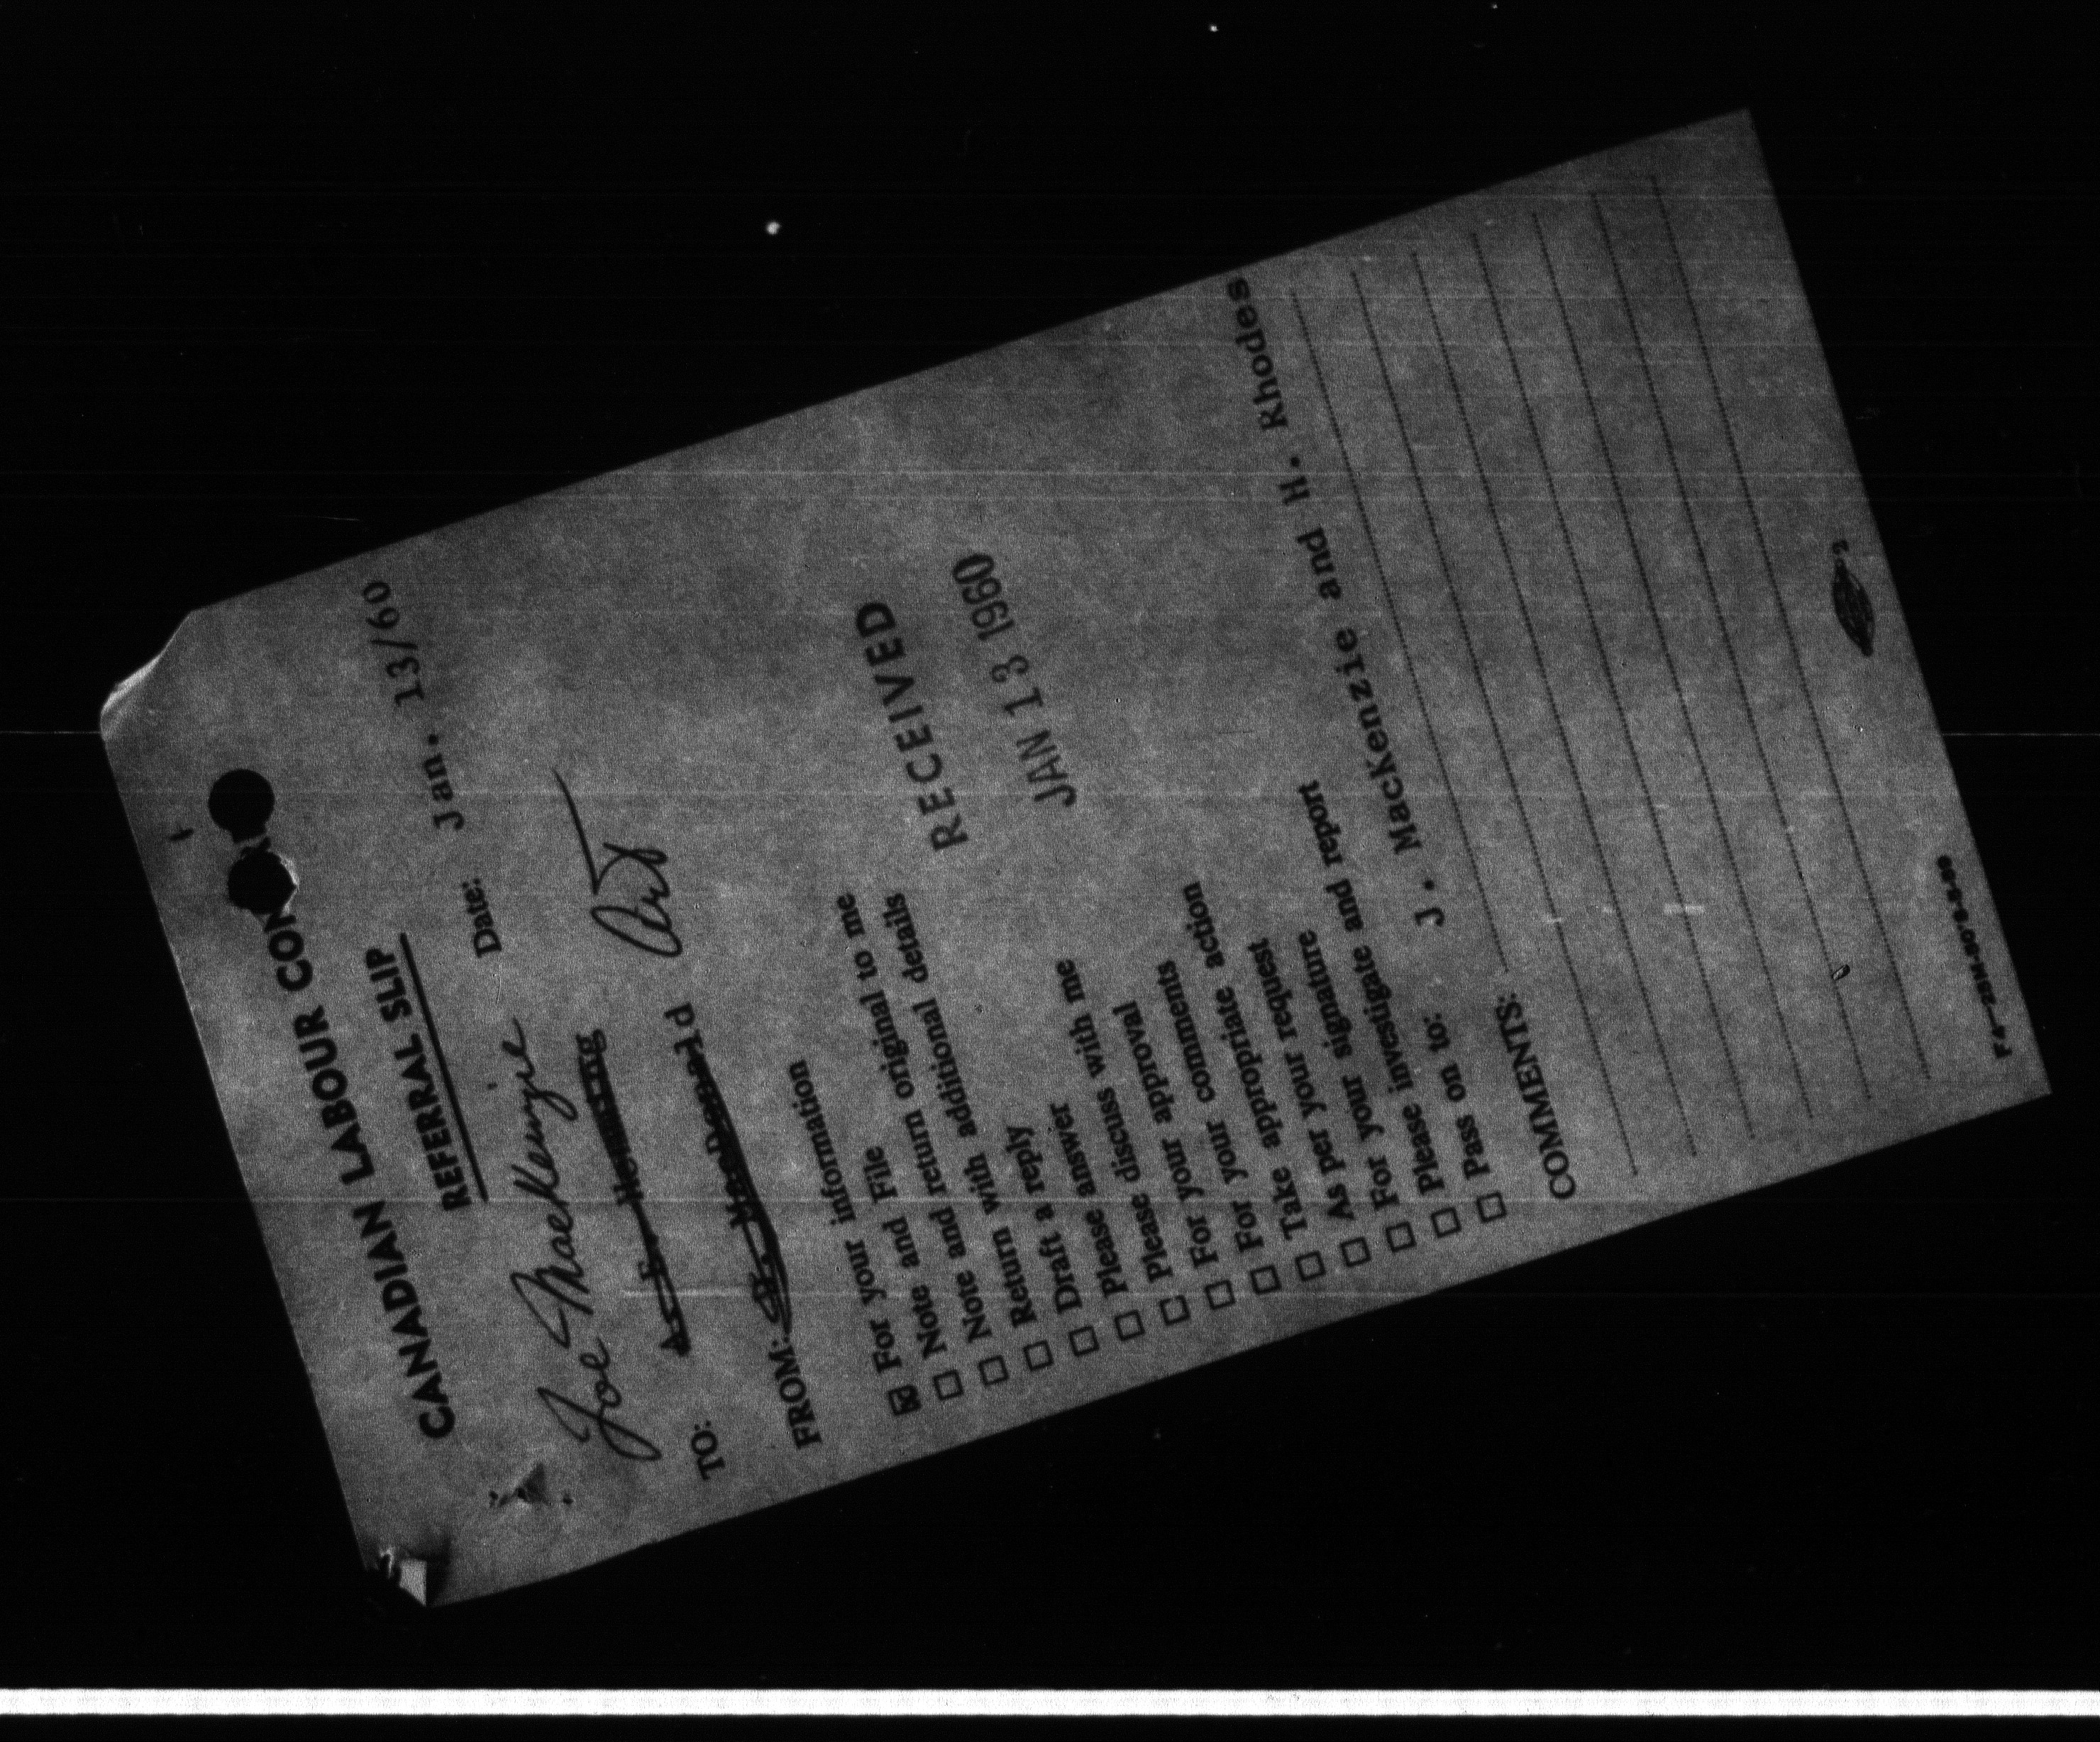 CANADIAN LABOUR CON
REFERRAL SLIP
Date: Jan. 13/60
Joe MacKenzie
TO: A. F. Hemming
Art
FROM: D. MacDonald
☒ For your information
☐ Note and File
☐ Note and return original to me
☐ Return with additional details
☐ Draft a reply
☐ Please answer
☐ Please discuss with me
☐ For your approval
☐ For your comments
☐ Take appropriate action
☐ As per your request
☐ For your signature
☐ Please investigate and report
☐ Pass on to: J. MacKenzie and H. Rhodes
RECEIVED
JAN 13 1960
COMMENTS: